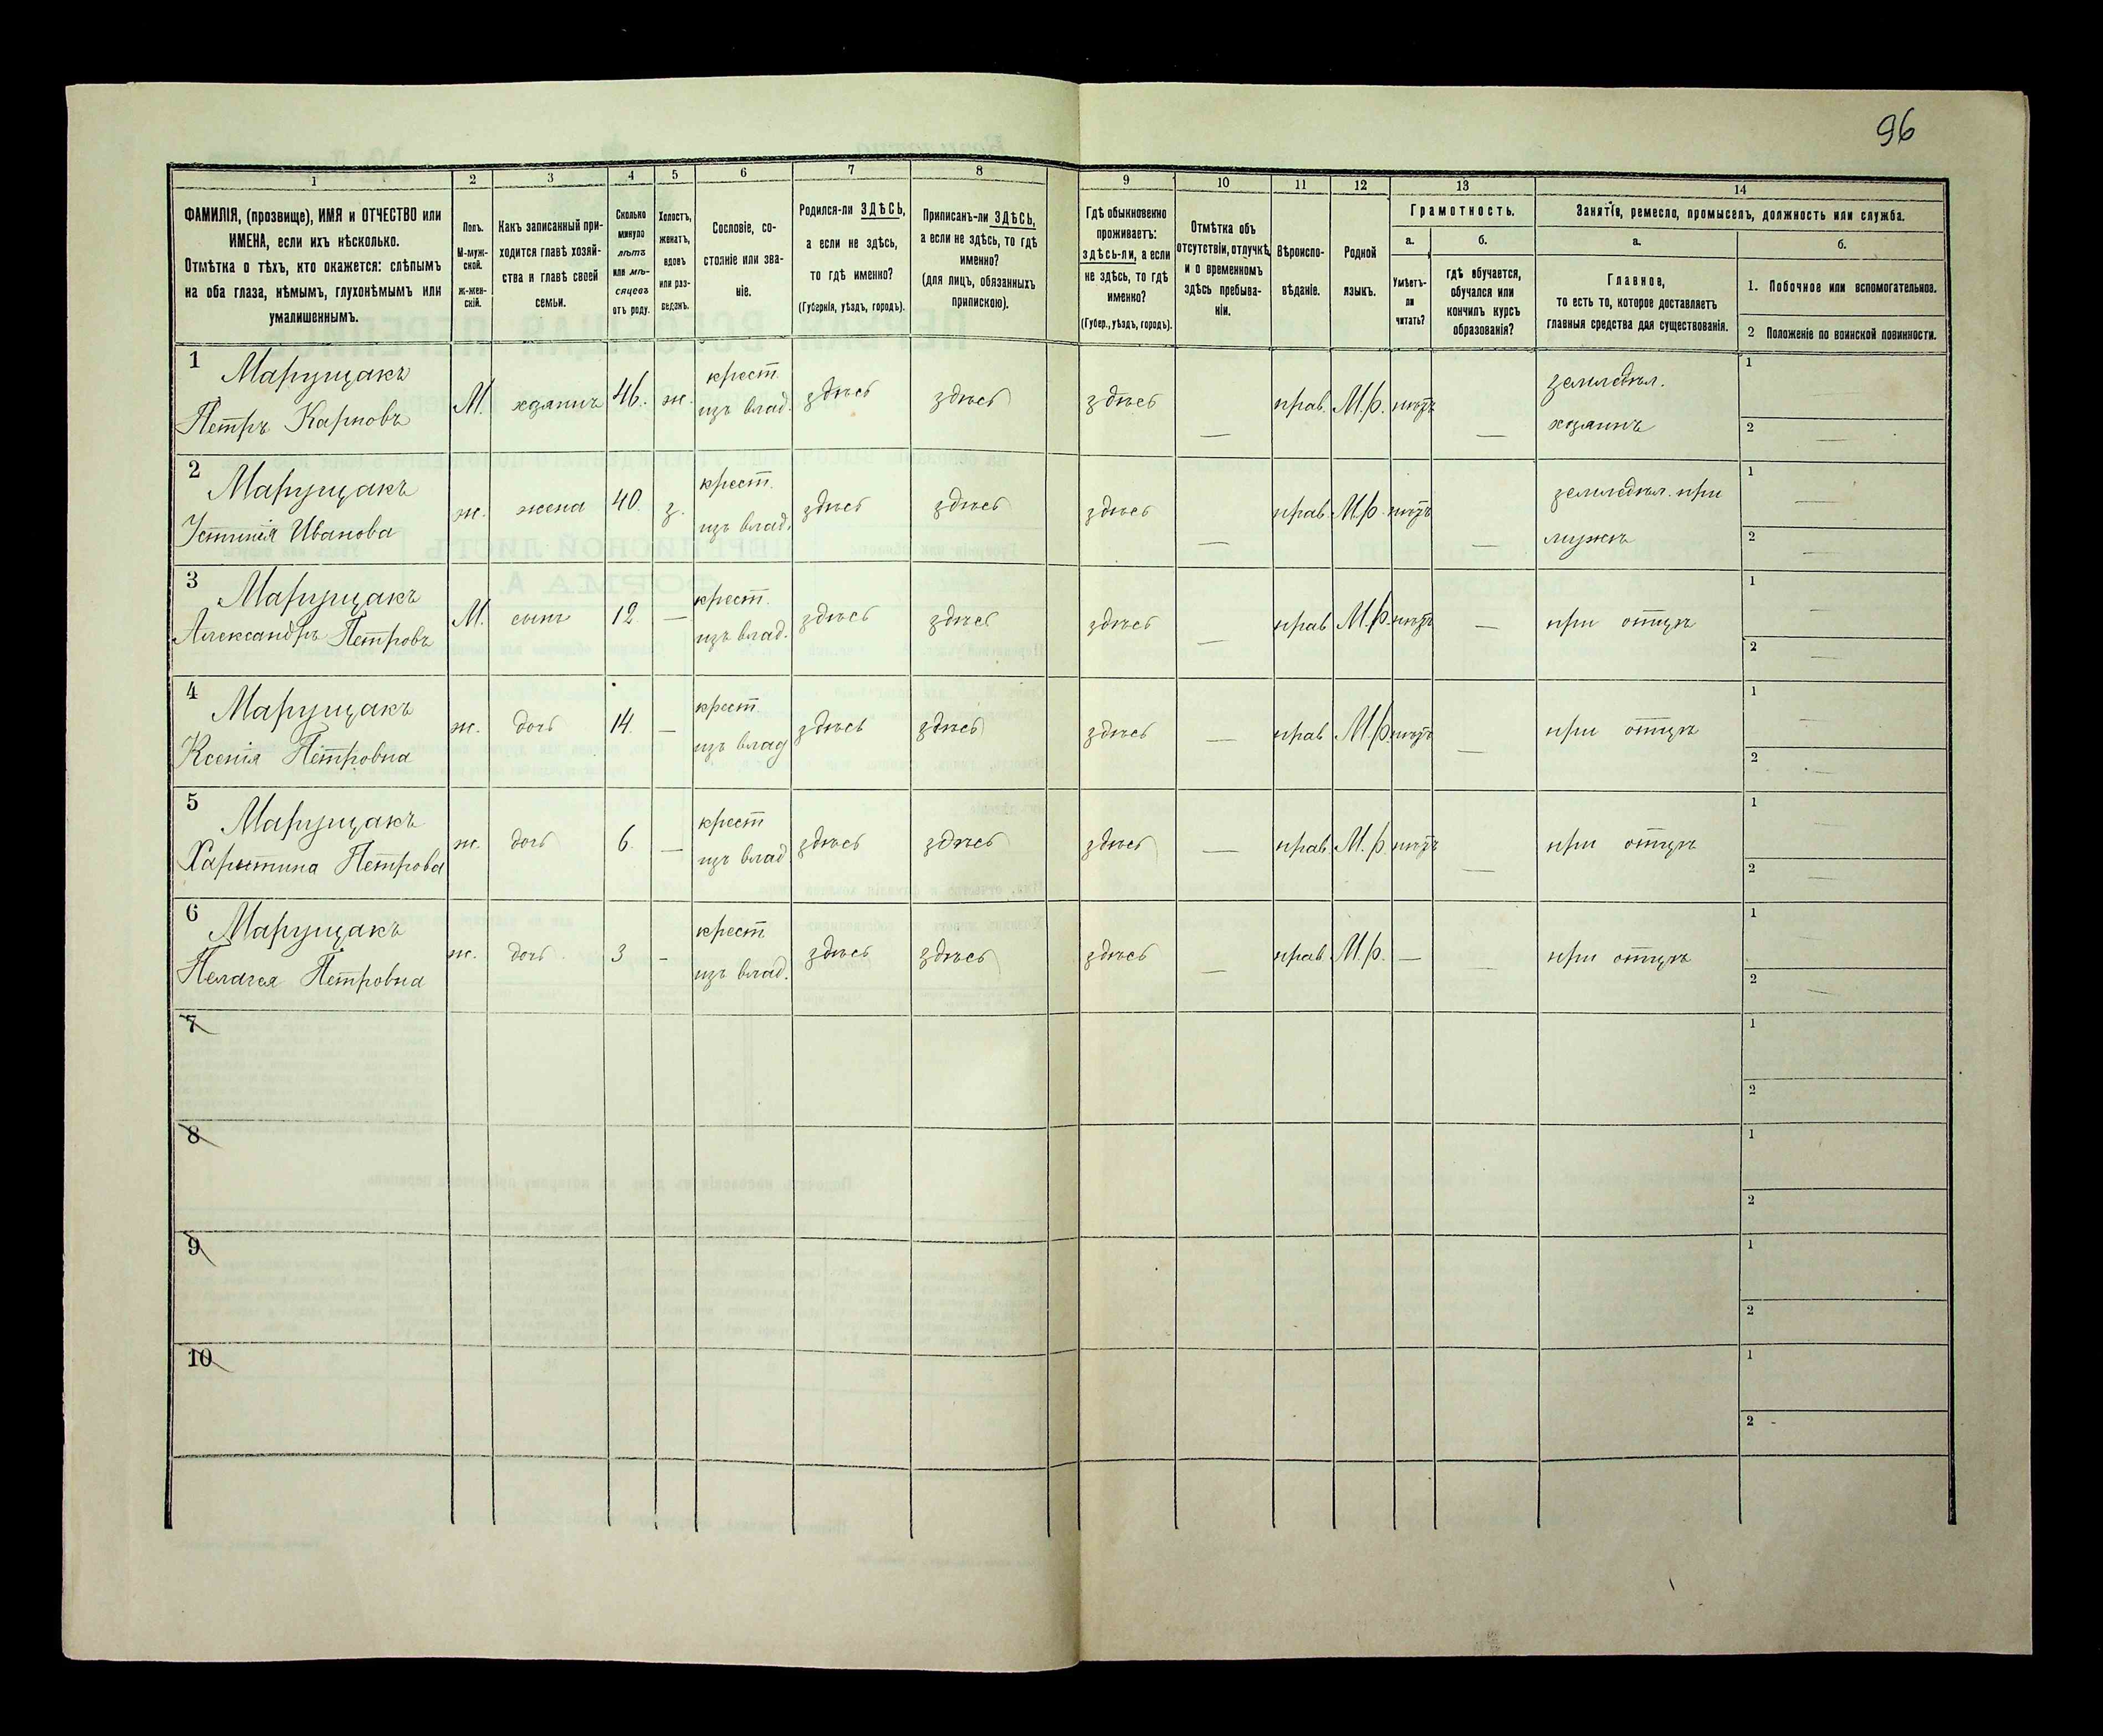 96
1
2
3
4
5
6
7
8
9
10
11
12
13
14
ФАМИЛІЯ, (прозвище), ИМЯ и ОТЧЕСТВО или
ИМЕНА, если ихъ нѣсколько.
Отмѣтка о тѣхъ, кто окажется: слѣпымъ
на оба глаза, нѣмымъ, глухонѣмымъ или
умалишеннымъ.
Полъ.
М-муж-
ской.
ж-жен-
скій.
Какъ записанный при-
ходится главѣ хозяй-
ства и главѣ своей
семьи.
Сколько
минуло
лѣтъ
или мѣ-
сяцевъ
отъ роду.
Холостъ,
женатъ,
вдовъ
или раз-
веденъ.
Сословіе, со-
стояніе или зва-
ніе.
Родился-ли ЗДѢСЬ,
а если не здѣсь,
то гдѣ именно?
(Губернія, уѣздъ, городъ).
Приписанъ-ли ЗДѢСЬ,
а если не здѣсь, то гдѣ
именно?
(для лицъ, обязанныхъ
припискою).
Гдѣ обыкновенно
проживаетъ:
здѣсь-ли, а если
не здѣсь, то гдѣ
именно?
(Губер., уѣздъ, городъ).
Отмѣтка объ
отсутствіи, отлучкѣ
и о временномъ
здѣсь пребыва-
ніи.
Вѣроиспо-
вѣданіе.
Родной
языкъ.
Грамотность.
а.
Умѣетъ-
ли
читать?
б.
гдѣ обучается,
обучался или
кончилъ курсъ
образованія?
Занятіе, ремесло, промыселъ, должность или служба.
а.
Главное,
то есть то, которое доставляетъ
главныя средства для существованія.
б.
1. Побочное или вспомогательное.
2 Положеніе по воинской повинности.
1
Марущакъ
Петръ Карповъ
М.
хозяинъ
46.
ж.
крест.
изъ влад.
здѣсь
здѣсь
здѣсь
—
прав.
М.р.
нѣтъ
—
земледѣл.
хозяинъ
1
2 —
2
Марущакъ
Устинія Иванова
ж.
жена
40.
з.
крест.
изъ влад.
здѣсь
здѣсь
здѣсь
—
прав.
М.р.
нѣтъ
—
земледѣл. при
мужѣ
1 —
2 —
3
Марущакъ
Александръ Петровъ
М.
сынъ
12
—
крест.
изъ влад.
здѣсь
здѣсь
здѣсь
—
прав
М.р.
нѣтъ
—
при отцѣ
1 —
2 —
4
Марущакъ
Ксенія Петровна
ж.
дочь
14.
—
крест.
изъ влад
здѣсь
здѣсь
здѣсь
—
прав
М.р.
нѣтъ
—
при отцѣ
1 —
2 —
5
Марущакъ
Харытина Петрова
ж.
дочь
6.
—
крест
изъ влад
здѣсь
здѣсь
здѣсь
—
прав.
М.р.
нѣтъ
—
при отцѣ
1 —
2 —
6
Марущакъ
Пелагея Петровна
ж.
дочь.
3
-
крест
изъ влад.
здѣсь
здѣсь
здѣсь
—
прав.
М.р.
—
—
при отцѣ
1 —
2 —
7
1
2
8
1
2
9
1
2
10
1
2 -